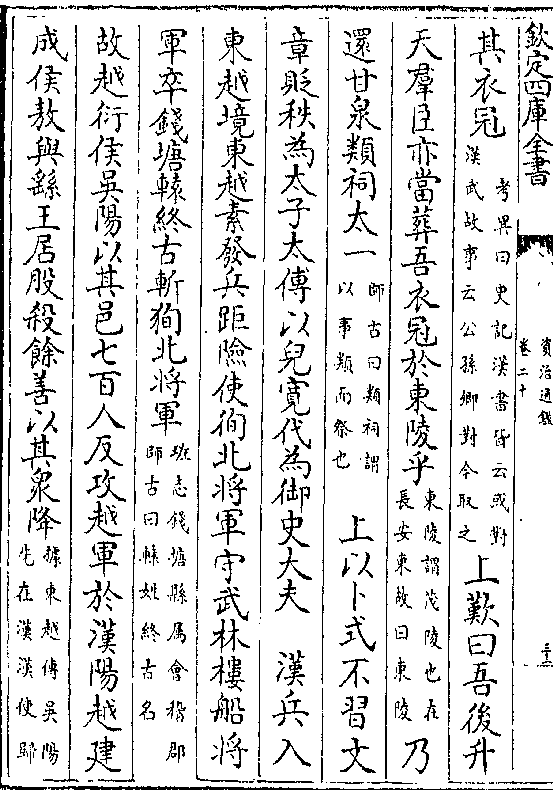 欽定四庫全書
資治通鑑
卷二十
三十二
其衣冠考異曰史記漢書皆云或對漢武故事云公孫卿對今取之上歎曰吾後升
天羣臣亦當葬吾衣冠於東陵乎東陵謂茂陵也在長安東故曰東陵乃
還甘泉類祠太一師古曰類祠謂以事類而祭也 上以卜式不習文
章貶秩為太子太傅以兒寛代為御史大夫 漢兵入
東越境東越素發兵距險使徇北將軍守武林樓船將
軍卒錢塘轅終古斬徇北將軍班志錢塘縣屬會稽郡師古曰轅姓終古名
故越衍侯吳陽以其邑七百人反攻越軍於漢陽越建
成侯敖與繇王居股殺餘善以其衆降據東越傳吳陽先在漢漢使歸